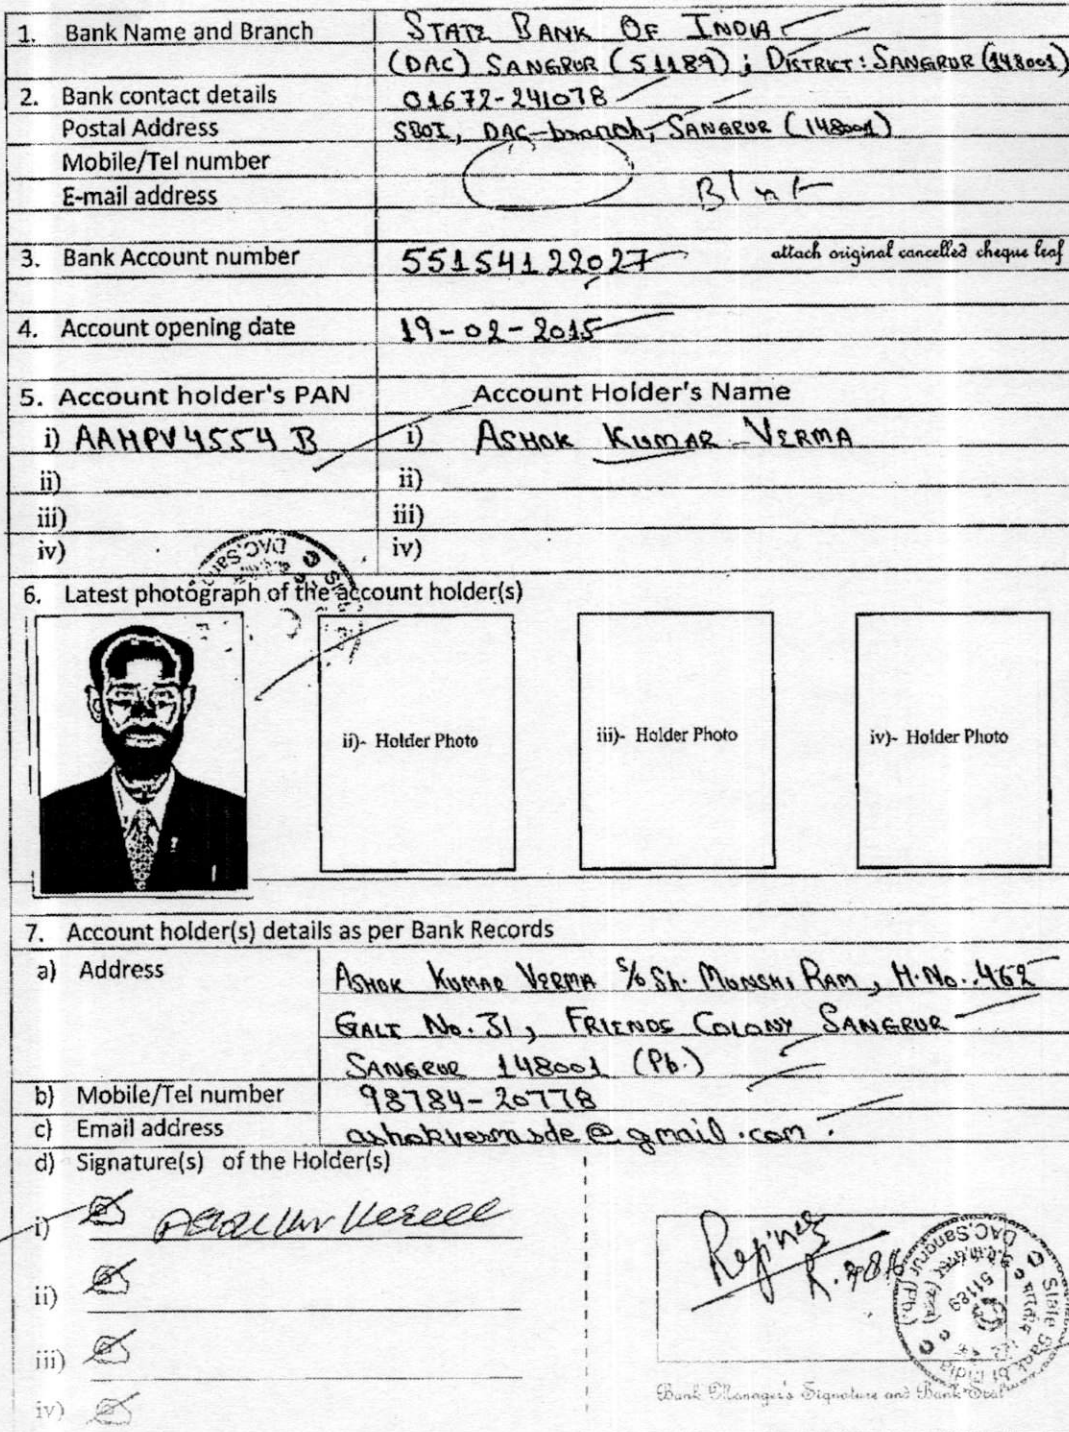 1. Bank Name and Branch STATE BANK OF INDIA
(DAC) SANGRUR (51189) ; DISTRICT: SANGRUR (148001)
2. Bank contact details 01672-241078
Postal Address SBOI, DAC-branch, SANGRUR (148001)
Mobile/Tel number
E-mail address Blnk
3. Bank Account number 55154122027 attach original cancelled cheque leaf
4. Account opening date 19-02-2015
5. Account holder's PAN Account Holder's Name
i) AAHPV4554B i) ASHOK KUMAR VERMA
ii) ii)
iii) iii)
iv) iv)
DAC, Sangrur
6. Latest photograph of the account holder(s)
ii)- Holder Photo iii)- Holder Photo iv)- Holder Photo
7. Account holder(s) details as per Bank Records
a) Address ASHOK KUMAR VERMA S/o Sh. MUNSHI RAM, H.No. 462
GALI No. 31, FRIENDS COLONY SANGRUR
SANGRUR 148001 (Pb.)
b) Mobile/Tel number 98784-20778
c) Email address ashokvermasde@gmail.com.
d) Signature(s) of the Holder(s)
i)
ii)
iii)
iv)
State Bank of India
DAC, Sangrur (Pb.)
51189
Bank Manager's Signature and Bank Seal